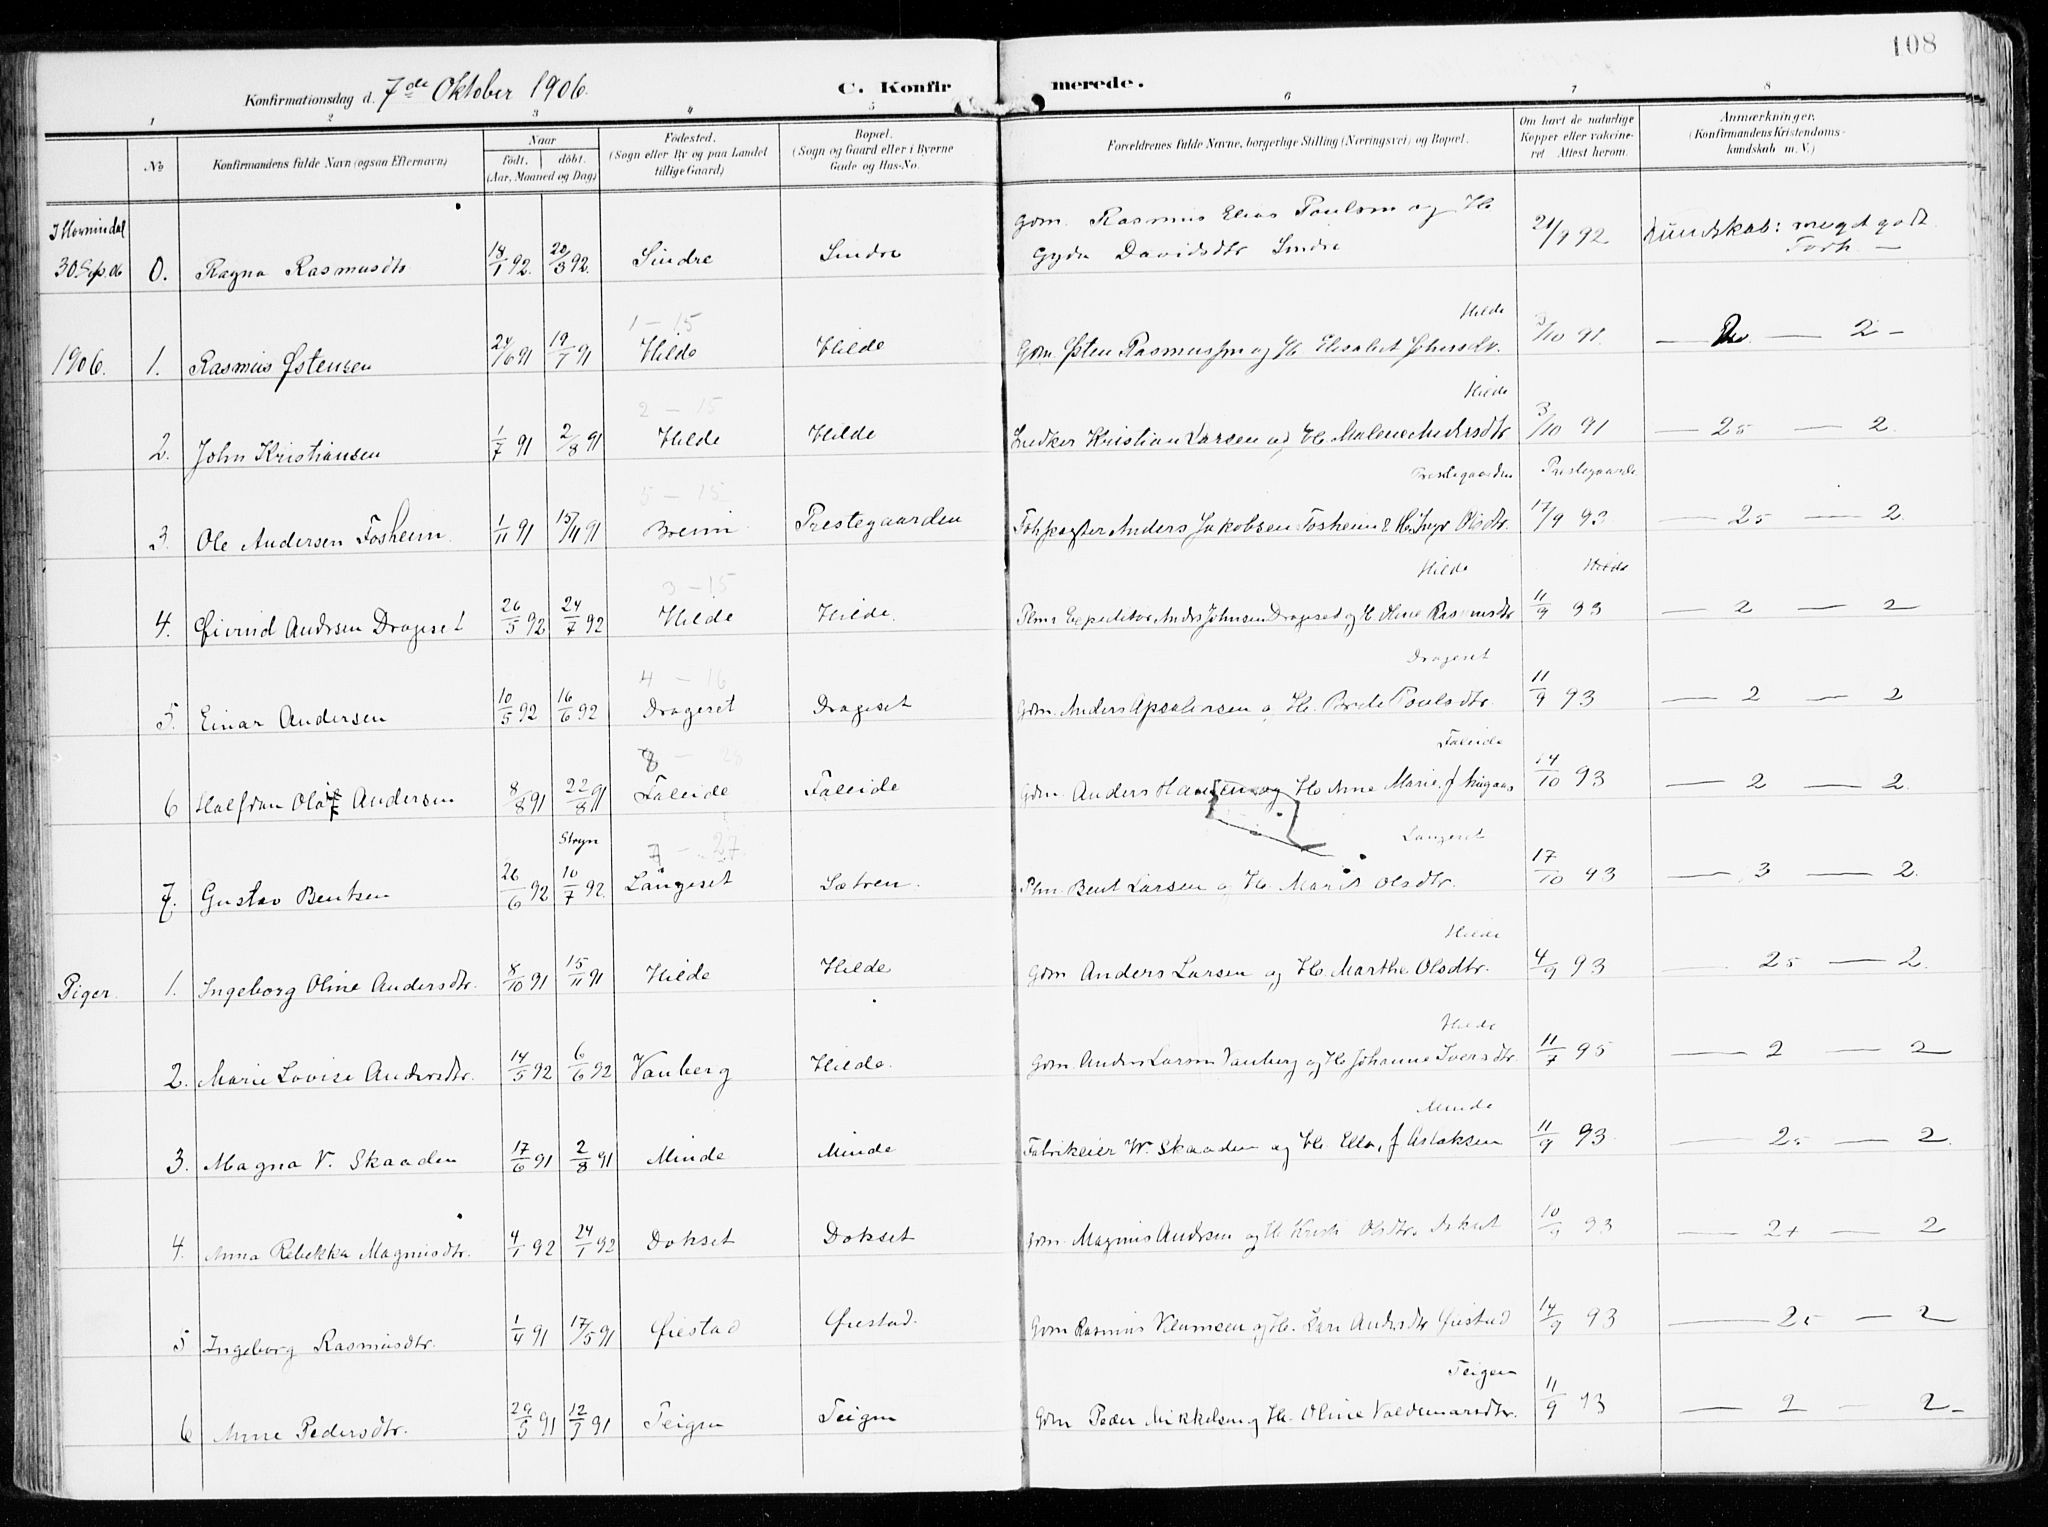 108
Konfirmationsdag d. 7de Oktober 1906.
C. Konfirmerede.
1 2 3 4 5 6 7 8
No
Konfirmandens fulde Navn (ogsaa Efternavn)
Naar
født. døbt.
(Aar, Maaned og Dag)
Fødested.
(Sogn eller By og paa Landet
tillige Gaard)
Bopæl.
(Sogn og Gaard eller i Byerne
Gade og Hus-No.
Forældrenes fulde Navne, borgerlige Stilling (Næringsvei) og Bopæl.
Om havt de naturlige
Kopper eller vakcine-
ret Attest herom.
Anmærkninger.
(Konfirmandens Kristendoms-
kundskab m. V.)
I Hornindal
30 Sep 06 0. Ragna Rasmusdtr 18/1 92. 20/3 92. Sindre Sindre Gdm. Rasmus Elias Paulsen og H.
Gyda Davidsdtr Sindre 21/9 92 Kundskab: meget godt
Forh. —
1 — 15 Hilde
1906. 1. Rasmus Østensen 24/6 91 19/7 91 Hilde Hilde Gdm. Østen Rasmussen og H. Elisabet 3/10 91. — — 2 —
2 — 15 Hilde
2. John Kristiansen 1/7 91 2/8 91 Hilde Hilde Kristian Larsen og H. Malene Andersdtr 3/10 91 — 25 — 2.
5 — 15 Prestegaarden Prestegaarde
3. Ole Andersen Fosheim. 1/11 91 15/11 91 Breim. Prestegaarden Anders Jakobsen Fosheim & H. Olsdtr. 17/9 93 — 25 — 2.
3 — 15 Hilde Hilde
4. Øivind Andrsen Drageset 26/5 92 24/7 92 Hilde Hilde. Expeditør Anders Johnsen Drageset og H. Oline Rasmusdtr 11/9 93 — 2 — 2
4 — 16 Drageset
5. Einar Andersen 10/5 92 16/6 92 Drageset Drageset Gdm. Anders Apsalonsen og H. Brite Poulsdtr. 11/9 93 — 2 — 2
8 — 28 Faleide
6 Halfdan Olaf Andersen 8/8 91 22/8 91 Faleide Faleide Gdm. Anders Hansen og H. Ane Marie, f. 14/10 93 — 2 — 2.
Stryn 7 — 27. Langeset
7. Gustav Bentsen 26/6 92 10/7 92. Langeset Sætren. Plm. Bent Larsen og H. Marit Olsdtr. 17/10 93 — 3 — 2.
Hilde
Piger. 1. Ingeborg Oline Andersdtr. 8/10 91 15/11 91 Hilde Hilde Gdm Anders Larsen og H. Marthe Olsdtr. 4/9 93 25 — 2.
Hilde
2. Marie Lovise Andersdtr. 14/5 92 6/6 92 Vanberg Hilde. Gdm. Anders Larsen Vanberg og H. Johanne Iversdtr. 11/7 95 — 2 — 2
Minde
3. Magna V. Skaaden 17/6 91 2/8 91 Minde Minde Fabrikeier W. Skaaden og H. Ella, f. Aslaksen 11/9 93. — 25 — 2.
4. Anna Rebekka Magnusdtr. 4/1 92 24/1 92 Dokset Dokset Gdm. Magnus Andersen og H. Kristi Olsdtr. Dokset 10/9 93 — 2+ — 2
5 Ingeborg Rasmusdtr. 1/4 91 17/5 91 Øiestad Øiestad. Gdm Rasmus og H. Kari Andersdtr Øiestad 14/9 93 — 25 — 2
Teigen
6 Anne Pedersdtr. 29/5 91 12/7 91 Teigen Teigen Gdm Peder Mikkelsen og H. Oline Valdemarsdtr. 11/9 93 — 2 — 2 —